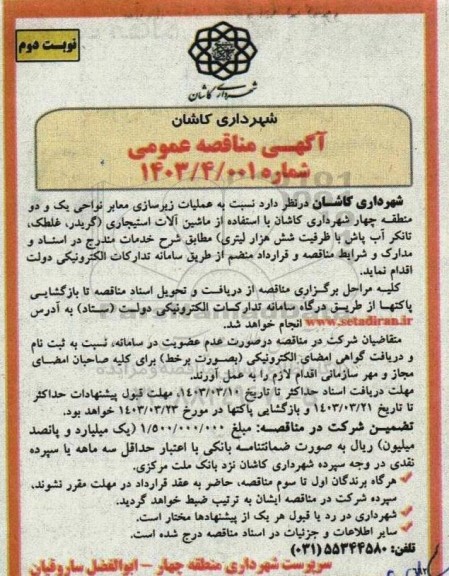 نوبت دوم
شهرداری کاشان
شهرداری کاشان
آگهی مناقصه عمومی
شماره ۱۴۰۳/۴/۰۰۱
شهرداری کاشان درنظر دارد نسبت به عملیات زیرسازی معابر نواحی یک و دو
منطقه چهار شهرداری کاشان با استفاده از ماشین آلات استیجاری (گریدر، غلطک،
تانکر آب پاش با ظرفیت شش هزار لیتری) مطابق شرح خدمات مندرج در اسناد و
مدارک و شرایط مناقصه و قرارداد منضم از طریق سامانه تدارکات الکترونیکی دولت
اقدام نماید.
کلیه مراحل برگزاری مناقصه از دریافت و تحویل اسناد مناقصه تا بازگشایی
پاکتها از طریق درگاه سامانه تدارکات الکترونیکی دولت (ستاد) به آدرس
www.setadiran.ir انجام خواهد شد.
متقاضیان شرکت در مناقصه درصورت عدم عضویت در سامانه، نسبت به ثبت نام
و دریافت گواهی امضای الکترونیکی (بصورت برخط) برای کلیه صاحبان امضای
مجاز و مهر سازمانی اقدام لازم را به عمل آورند.
مهلت دریافت اسناد حداکثر تا تاریخ ، مهلت قبول پیشنهادات حداکثر
تا تاریخ ۱۴۰۳/۰۳/۲۱ و بازگشایی پاکتها در مورخ ۱۴۰۳/۰۳/۲۳ خواهد بود.
تضمین شرکت در مناقصه: مبلغ ۱/۵۰۰/۰۰۰/۰۰۰ (یک میلیارد و پانصد
میلیون) ریال به صورت ضمانتنامه بانکی با اعتبار حداقل سه ماهه یا سپرده
نقدی در وجه سپرده شهرداری کاشان نزد بانک ملت مرکزی.
هرگاه برندگان اول تا سوم مناقصه، حاضر به عقد قرارداد در مهلت مقرر نشوند،
سپرده شرکت در مناقصه ایشان به ترتیب ضبط خواهد گردید.
شهرداری در رد یا قبول هر یک از پیشنهادها مختار است.
سایر اطلاعات و جزئیات در اسناد مناقصه درج شده است.
تلفن: ۵۵۳۴۴۵۸۰ (۰۳۱)
سرپرست شهرداری منطقه چهار - ابوالفضل ساروقیان